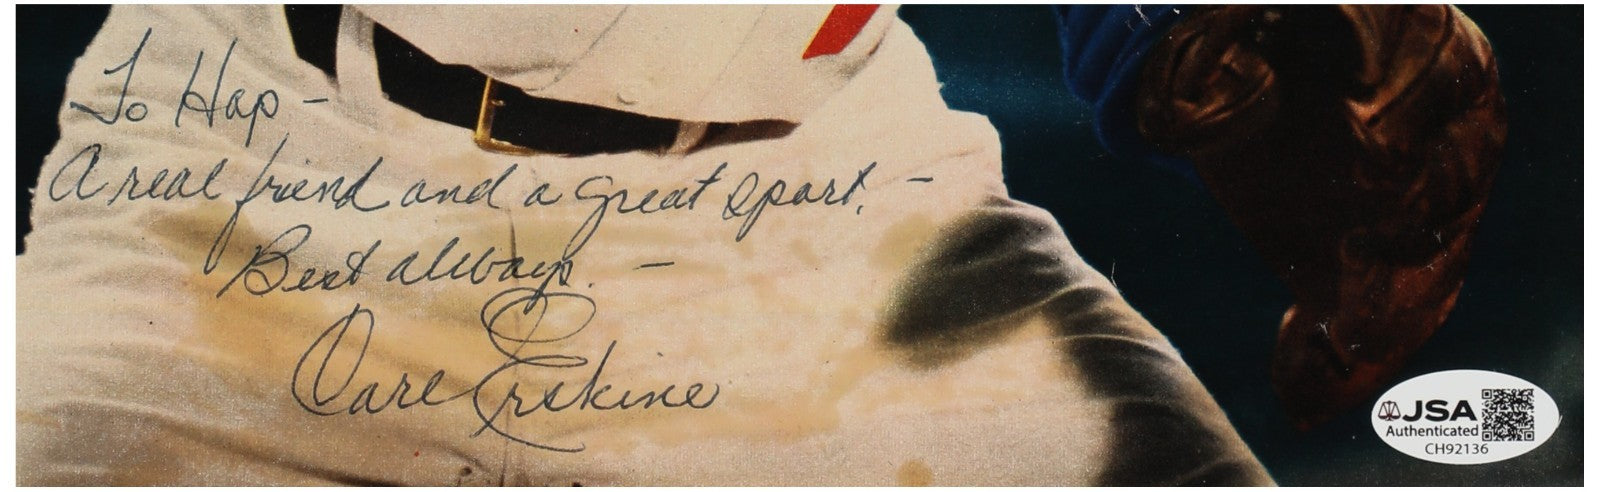 To Hap -
A real friend and a great sport. -
Best always. -
Carl Erskine
JSA
Authenticated
CH92136